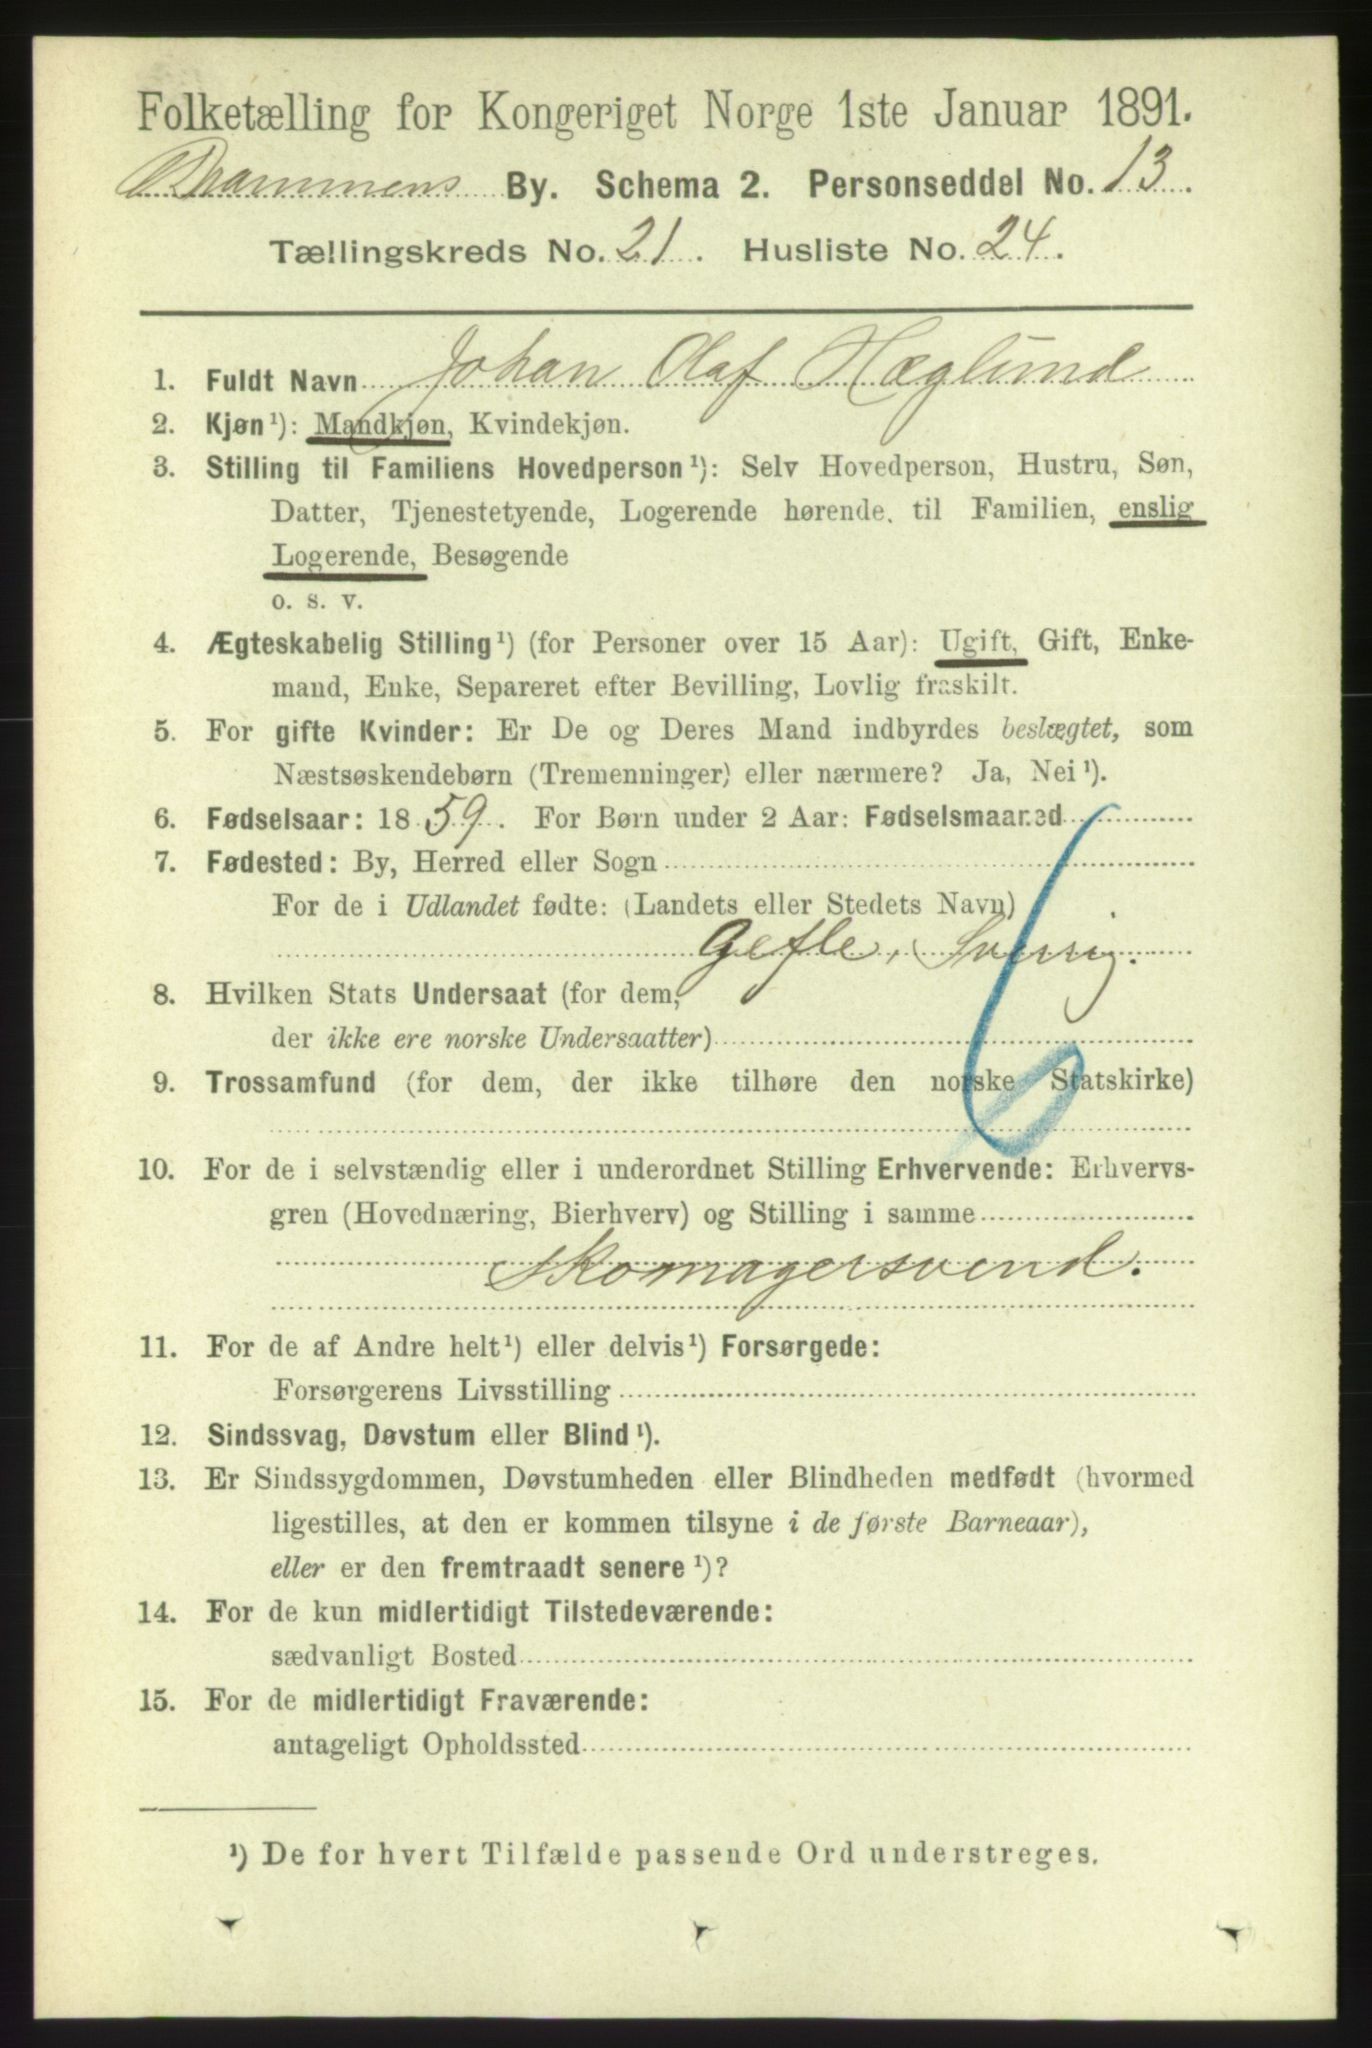 Folketælling for Kongeriget Norge 1ste Januar 1891.
Drammens By. Schema 2. Personseddel No. 13.
Tællingskreds No. 21. Husliste No. 24.
1. Fuldt Navn Johan Olaf Hæglund
2. Kjøn¹): Mandkjøn, Kvindekjøn.
3. Stilling til Familiens Hovedperson¹): Selv Hovedperson, Hustru, Søn,
Datter, Tjenestetyende, Logerende hørende til Familien, enslig
Logerende, Besøgende
o. s. v.
4. Ægteskabelig Stilling¹) (for Personer over 15 Aar): Ugift, Gift, Enke-
mand, Enke, Separeret efter Bevilling, Lovlig fraskilt.
5. For gifte Kvinder: Er De og Deres Mand indbyrdes beslægtet, som
Næstsøskendebørn (Tremenninger) eller nærmere? Ja, Nei¹).
6. Fødselsaar: 1859. For Børn under 2 Aar: Fødselsmaaned
7. Fødested: By, Herred eller Sogn
For de i Udlandet fødte: (Landets eller Stedets Navn)
Gefle, Sverig.
8. Hvilken Stats Undersaat (for dem,
der ikke ere norske Undersaatter)
9. Trossamfund (for dem, der ikke tilhøre den norske Statskirke)
10. For de i selvstændig eller i underordnet Stilling Erhvervende: Erhvervs-
gren (Hovednæring, Bierhverv) og Stilling i samme
Skomagersvend.
11. For de af Andre helt¹) eller delvis¹) Forsørgede:
Forsørgerens Livsstilling
12. Sindssvag, Døvstum eller Blind¹).
13. Er Sindssygdommen, Døvstumheden eller Blindheden medfødt (hvormed
ligestilles, at den er kommen tilsyne i de første Barneaar),
eller er den fremtraadt senere¹)?
14. For de kun midlertidigt Tilstedeværende:
sædvanligt Bosted
15. For de midlertidigt Fraværende:
antageligt Opholdssted
¹) De for hvert Tilfælde passende Ord understreges.